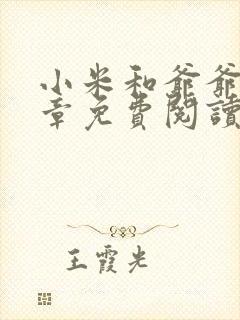 小米和爺爺
章免費閱讀
王霞光